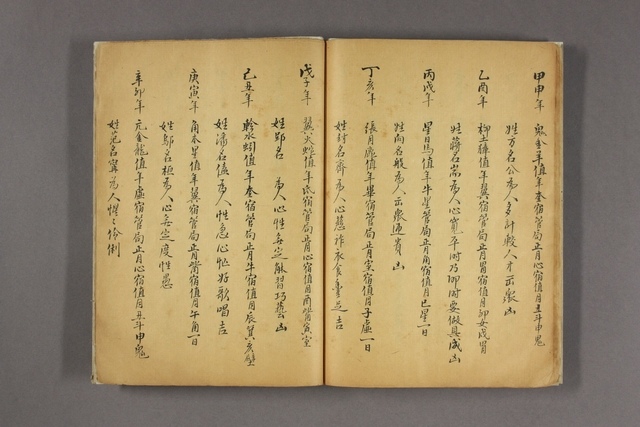 甲申年 鬼金羊值年奎宿管局正月心宿值月主斗申鬼
姓万名公為人多計較人才出眾凶
乙酉年 柳土獐值年翼宿管局正月胃宿值月卯女戌胃
姓蔣名 為人心寬卒时乃卯时安做具成凶
丙戌年 星日馬值年牛星管局正月角宿值月巳星一日
姓向名般為人出眾過貴凶
丁亥年 張月鹿值年畢宿管局正月室宿值月子虛一日
姓封名齊為人心慈詐衣食豐足吉
戊子年 翼火蛇值年氐宿管局正月心宿值月酉觜寅室
姓郢名 為人心性無定能習巧藝凶
己丑年 軫水蚓值年奎宿管局正月牛宿值月辰箕亥壁
姓 名值為人性急心忙好歌唱吉
庚寅年 角木星值年翼宿管局正月觜宿值月午角一日
姓鄔名桓為人心無定度性愚
辛卯年 亢金龍值年虛宿管局正月心宿值月丑斗申鬼
姓范名寧為人惺々伶俐